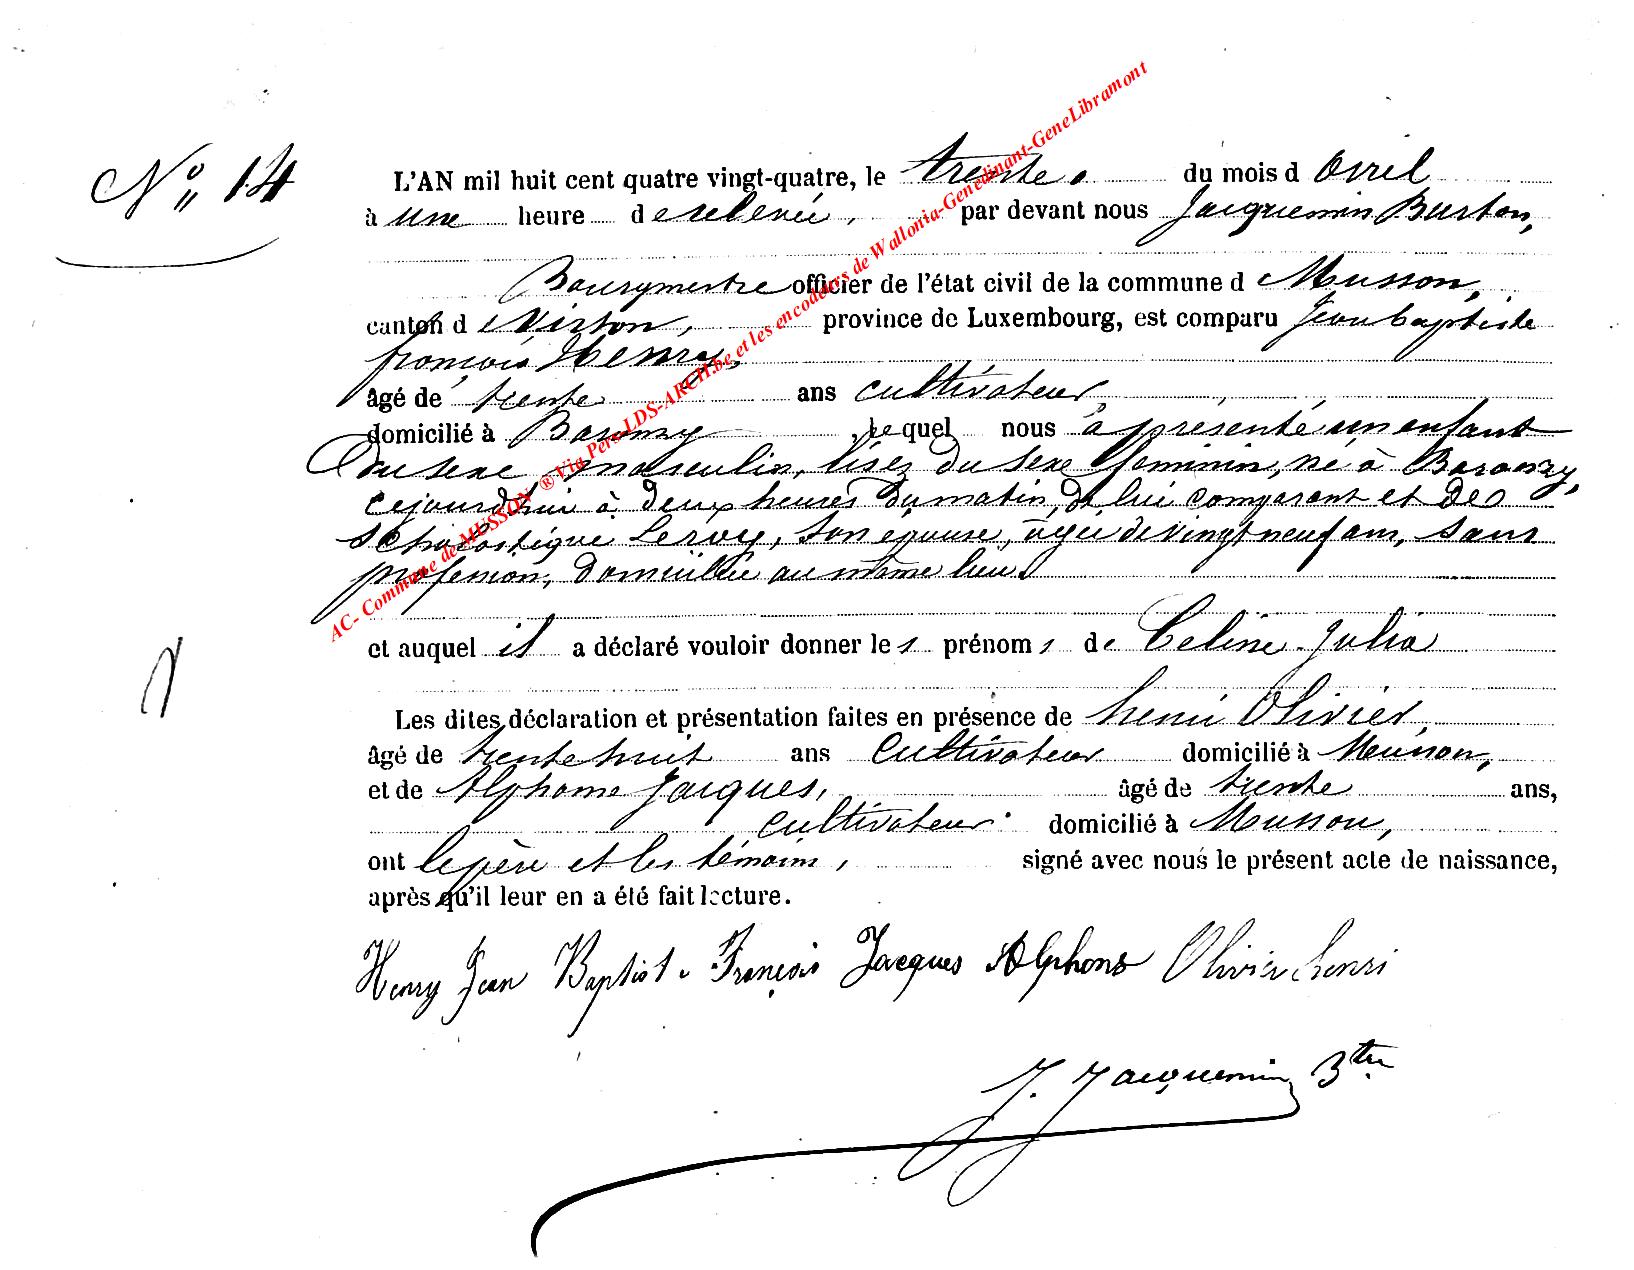 N° 14
L'AN mil huit cent quatre vingt-quatre, le trente du mois d'Avril
à une heure de relevée, par devant nous Jacquemin Burton,
Bourgmestre officier de l'état civil de la commune d Musson,
canton d Virton, province de Luxembourg, est comparu Jean baptiste
françois Henry,
âgé de trente ans cultivateur,
domicilié à Baranzy, lequel nous a présenté un enfant
du sexe masculin, lisez du sexe féminin, né à Baranzy,
cejourd'hui à deux heures du matin, de lui comparant et de
Scholastique Leroy, son épouse, âgée de vingt neuf ans, sans
profession, domiciliée au même lieu.
et auquel il a déclaré vouloir donner les prénoms de Celine Julia
Les dites déclaration et présentation faites en présence de henri Olivier,
âgé de trente huit ans Cultivateur domicilié à Musson,
et de Alphonse Jacques, âgé de trente ans,
cultivateur domicilié à Musson,
ont le père et les témoins, signé avec nous le présent acte de naissance,
après qu'il leur en a été fait lecture.
Henry Jean Baptiste François Jacques Alphons Olivier henri
J. Jacquemin Btre
AC- Commune de MUSSON ® Via Pers-LDS-ARCH.be et les encodeurs de Wallonia-Genedinant-GeneLibramont